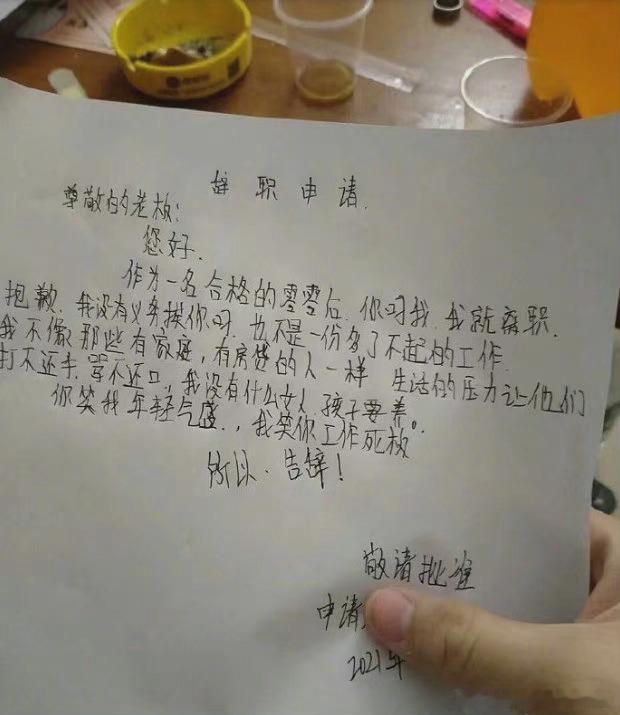 辞职申请.
尊敬的老板:
您好.
作为一名合格的零零后.你呵我.我就离职.
抱歉.我没有义务挨你呵.也不是一份多了不起的工作.
我不像那些有家庭,有房贷的人一样 生活的压力让他们
打不还手.骂不还口,我没有什么女人.孩子要养.
你笑我年轻气盛.,我笑你工作死板。
所以.告辞!
敬请批准
申请
2021年